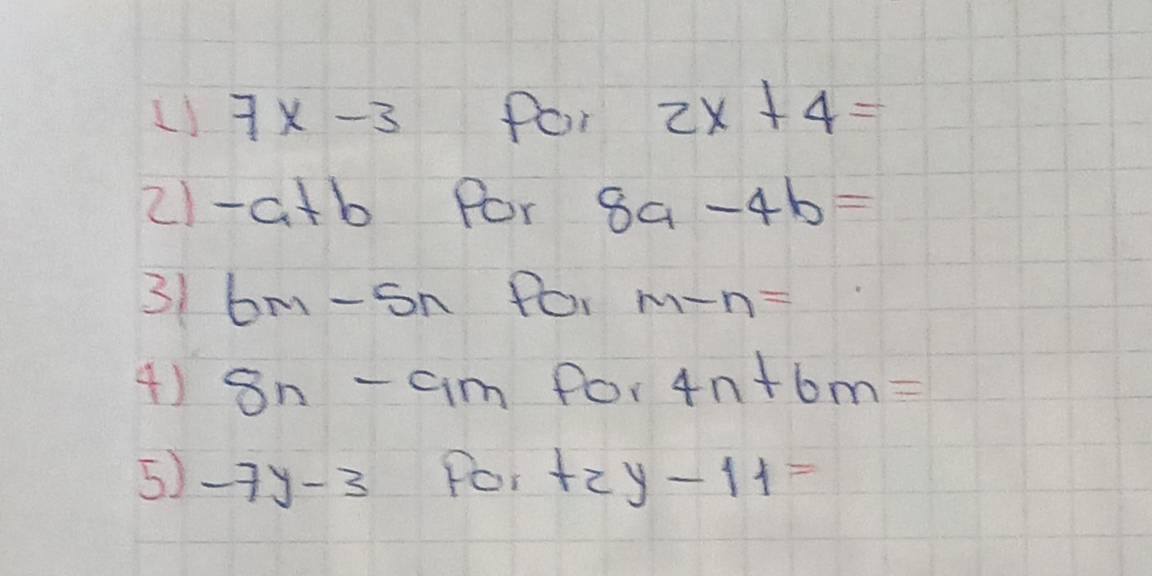 1) 7x - 3 Por 2x + 4 =
2) -a + b Por 8a - 4b =
3) 6m - 5n Por m - n =
4) 8n - 9m Por 4n + 6m =
5) -7y - 3 Por +2y - 11 =